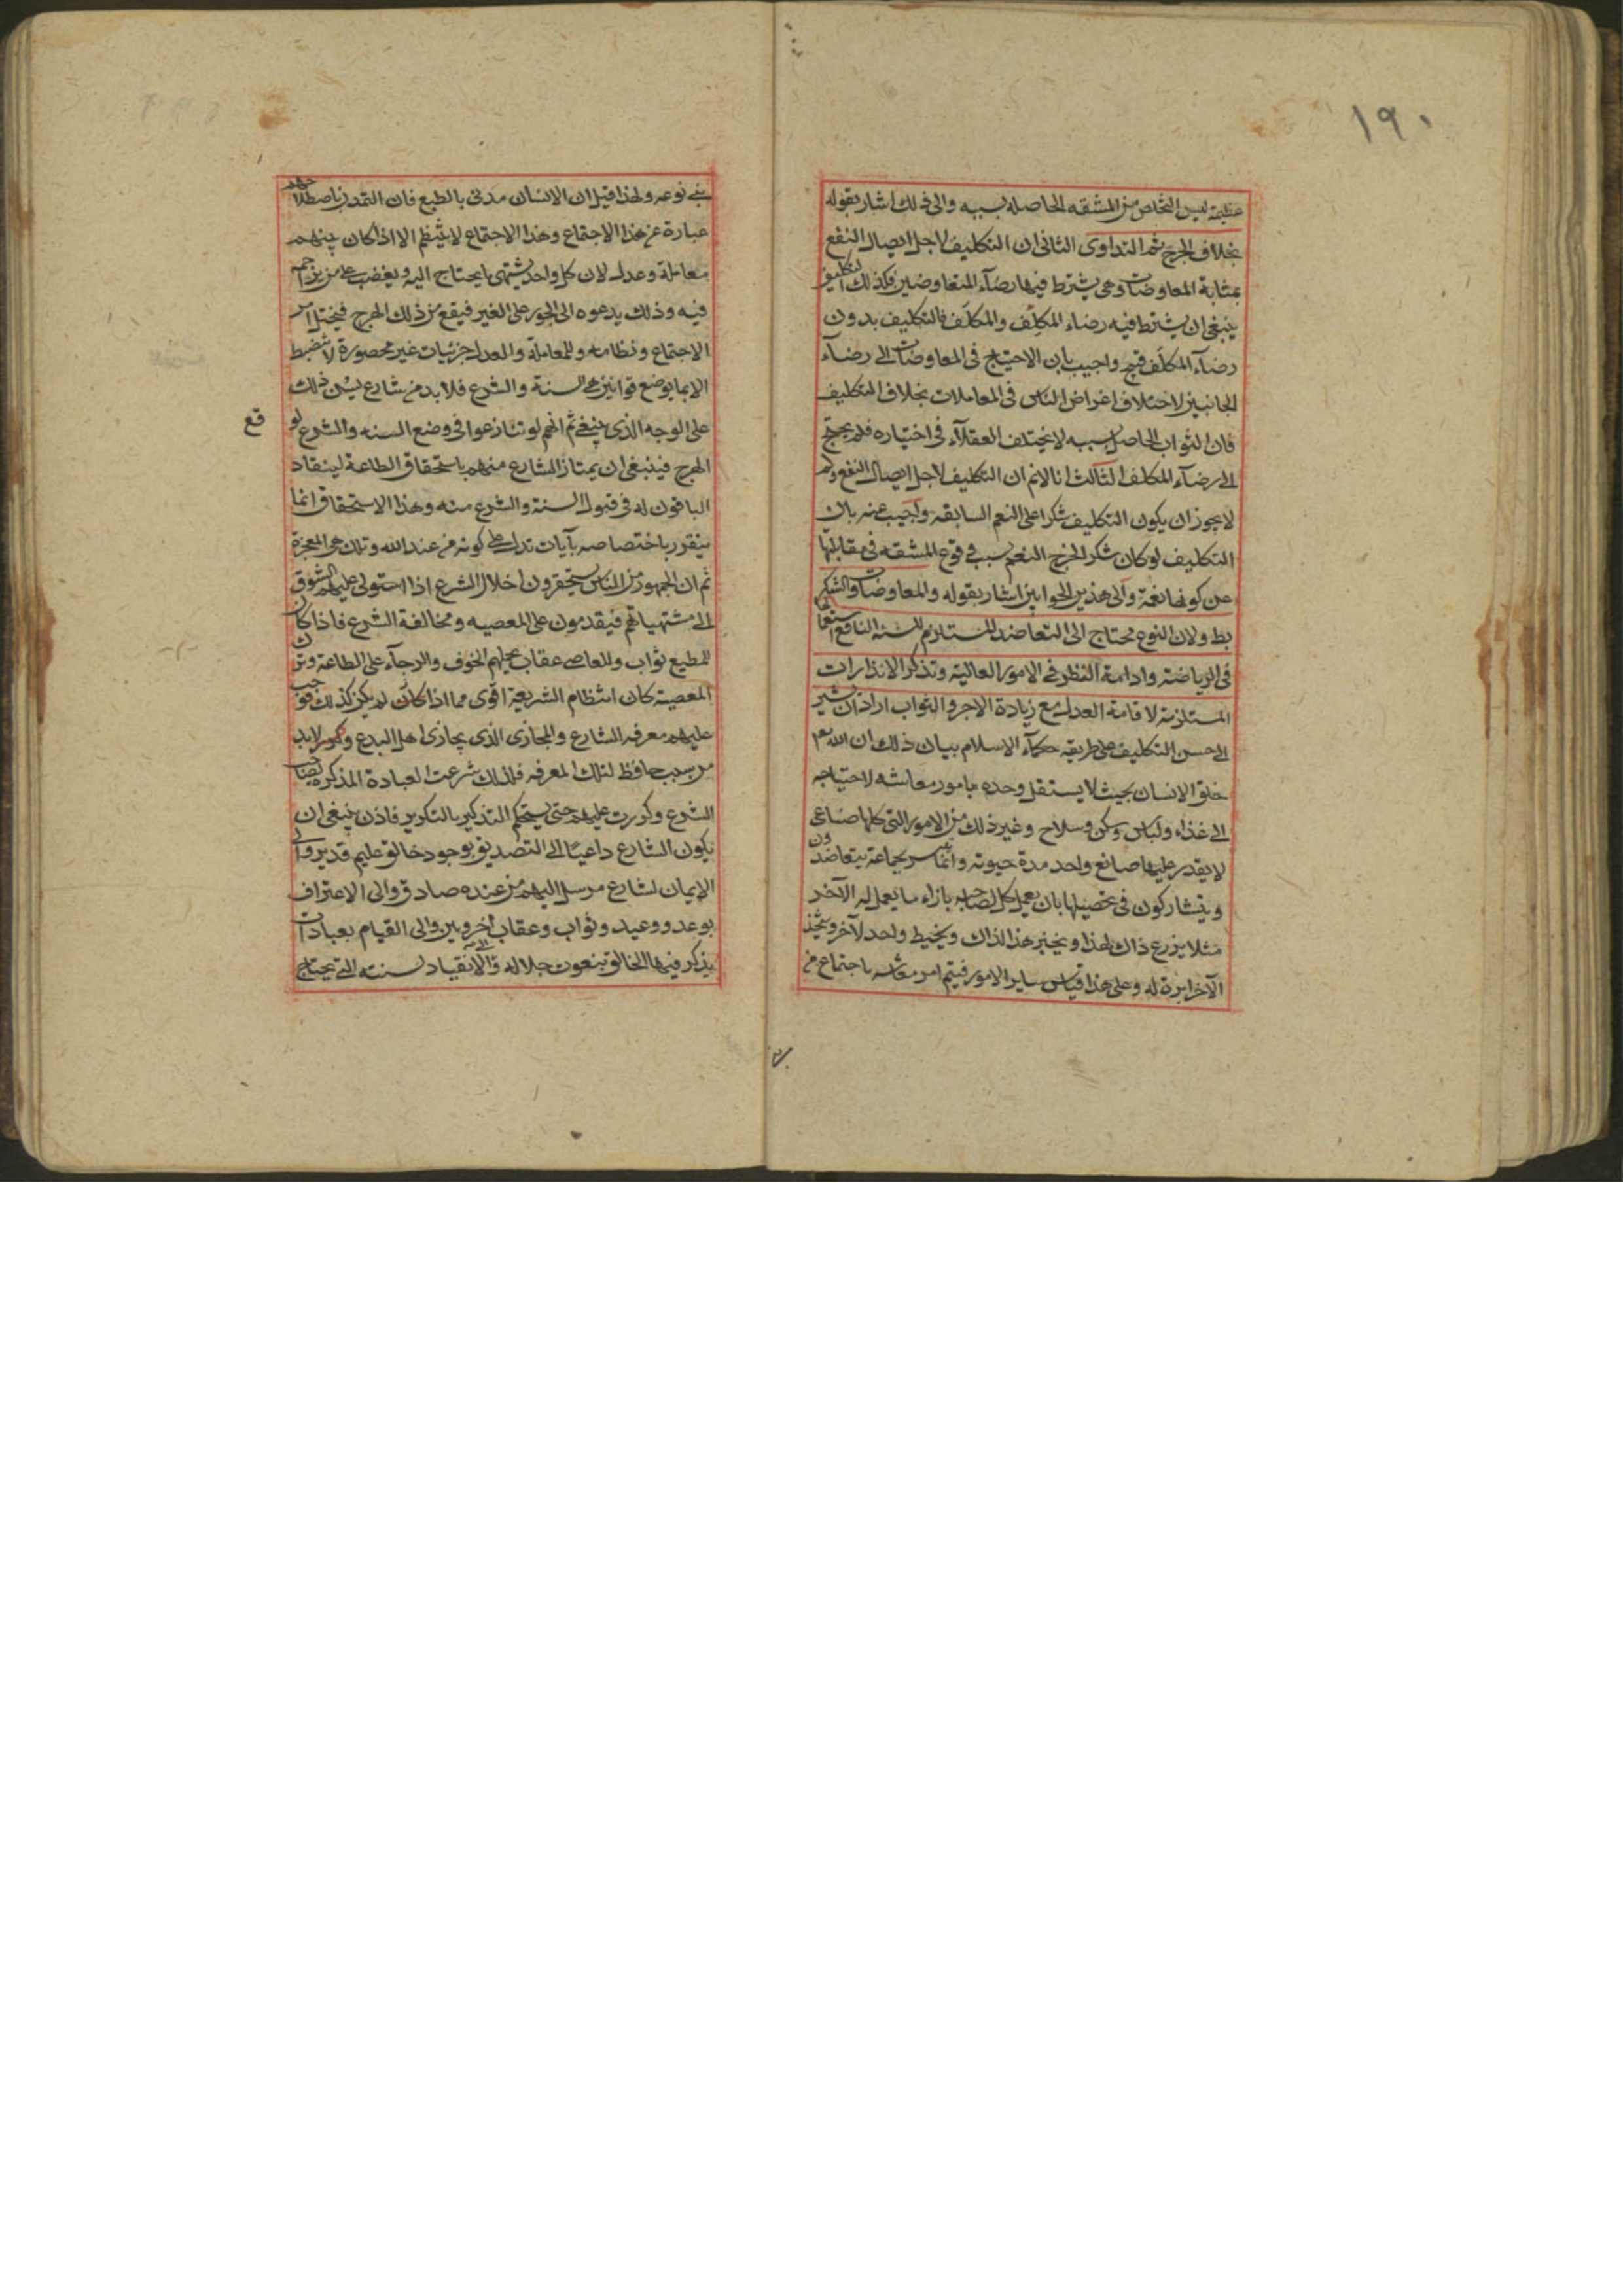 ١٩٠
عظيمة ليس التخلص من المشقه الحاصله بسببه والى ذلك اشار بقوله
بخلاف الجرح ثم التداوى الثانى ان التكليف لاجل ايصال النفع
بمثابة المعاوضات وهى يشترط فيها رضآء المتعاوضين فكذلك التكليف
ينبغى ان يشترط فيه رضاء المكلِّف والمكلَّف فالتكليف بدون
رضآء المكلَّف قبيح واجيب بان الاحتياج فى المعاوضات الى رضآء
الجانبين لاختلاف اغراض الناس فى المعاملات بخلاف التكليف
فان الثواب الحاصل بسببه لا يختلف العقلآء فى اختياره فلم يحتج
الى رضآء المكلف الثالث انا لانم ان التكليف لاجل ايصال النفع ولم
لا يجوز ان يكون التكليف شكرا على النعم السابقه واجيب عنه بان
التكليف لو كان شكر الخرج النعم بسبب وقوع المشقه فى مقابلتها
عن كونها نعمة والى هذين الجوابين اشار بقوله والمعاوضات والشكر
بط ولان النوع محتاج الى التعاضد المستلزم للسنه النافع استعمالها
فى الرياضته وادامة النظر فى الامور العالية وتذكر الانذارات
المستلزمة لاقامة العدل مع زيادة الاجر والثواب اراد ان يشير
الى حسن التكليف على طريقه حكمآء الاسلام بيان ذلك ان الله تعم
خلق الانسان بحيث لا يستقل وحده بامور معاشه لاحتياجه
الى غذاء ولباس وسكن وسلاح وغير ذلك من الامور التى كلها صناعى
لا يقدر عليها صانع واحد مدة حيوته وانما يتيسر بجماعة يتعاضدون
ويتشاركون فى تحصيلها بان يعمل كل لصاحبه بازاء ما يعمل له الآخر
مثلا يزرع ذاك لهذا ويخبز هذا لذاك ويخيط واحد لآخر ويتخذ
الآخر ابرة له وعلى هذا قياس ساير الامور فيتم امر معاشه باجتماع من
بنى نوعه ولهذا قيل ان الانسان مدنى بالطبع فان التمدن باصطلاحهم
عبارة عن هذا الاجتماع وهذا الاجتماع لا ينتظم الا اذا كان بينهم
معاملة وعدل لان كل واحد يشتهى ما يحتاج اليه ويغضب على من يزاحمه
فيه وذلك يدعوه الى الجور على الغير فيقع من ذلك الهرج فيختل امر
الاجتماع ونظامه وللمعاملة والعدل جزئيات غير محصورة لا تنضبط
الا بما يوضع قوانين هى السنة والشرع فلابد من شارع يسن ذلك
على الوجه الذى ينبغى ثم انهم لو تنازعوا فى وضع السنه والشرع لوقع
الهرج فينبغى ان يمتاز الشارع منهم باستحقاق الطاعة لينقاد
الباقون له فى قبول السنة والشرع منه وهذا الاستحقاق انما
يتقرر باختصاصه بآيات تدل على كونه من عند الله وتلك هى المعجزة
ثم ان الجمهور من الناس يستحقرون اخلال الشرع اذا استولى عليهم الشوق
الى مشتهياتهم فيقدمون على المعصيه ومخالفة الشرع فاذا كان
للمطيع ثواب وللعاصى عقاب يحملهم الخوف والرجآء على الطاعة وترك
المعصية كان انتظام الشريعة اقوى مما اذا كان لم يكن كذلك فوجب
عليهم معرفه الشارع والمجازى الذى يجازى اهل البدع ولابد
من سبب حافظ لتلك المعرفه فلذلك شرعت العبادة المذكره لصاحب
الشرع وكررت عليهم حتى يستحكم التذكير بالتكرير فاذن ينبغى ان
يكون الشارع داعيًا الى التصديق بوجود خالق عليم قدير والى
الايمان لشارع مرسل اليهم من عنده صادق والى الاعتراف
بوعد ووعيد وثواب وعقاب اخرويين والى القيام بعبادات
يذكر فيها الخالق بنعوت جلاله والى الانقياد لسنته التى يحتاج